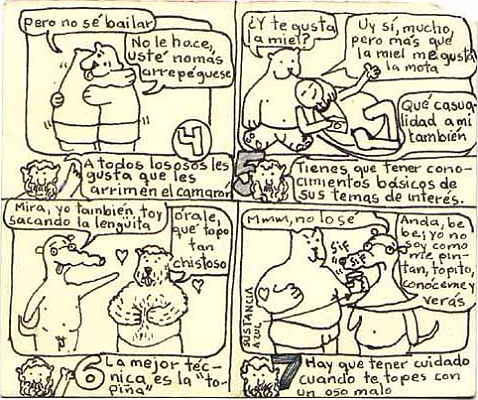 pero no sé bailar
No le hace,
usté nomás
arrepéguese
4
A todos los osos les
gusta que les
arrimen el camarón
¿Y te gusta
la miel?
Uy sí, mucho,
pero más que
la miel me gusta
la mota
Qué casua-
lidad a mí
también
5
Tienes que tener cono-
cimientos básicos de
sus temas de interés.
Mira, yo también toy
sacando la lengüita
órale,
qué topo
tan
chistoso
6
La mejor téc-
nica es la "to-
piña"
Mmm, no lo sé
Anda, be
be, yo no
soy como
me pin-
tan, topito,
conóceme y
verás
sif
sif
SUSTANCIA
AZUL
7
Hay que tener cuidado
cuando te topes con
un oso malo